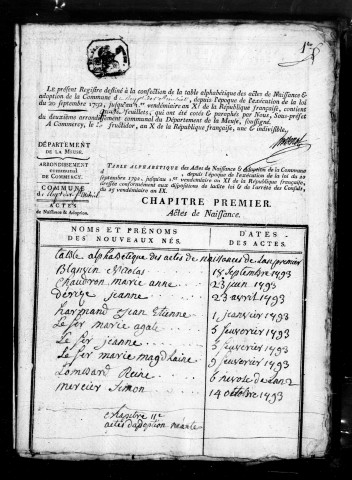 1re
Le présent Registre destiné à la confection de la table alphabétique des actes de Naissance &
adoption de la Commune d depuis l'époque de l'exécution de la loi
du 20 septembre 1792, jusqu'au 1.er vendémiaire an XI de la République française, contient
feuillets, qui ont été cotés & paraphés par Nous, Sous-préfet
du deuxième arrondissement communal du Département de la Meuse, soussigné.
A Commercy, le fructidor, an X de la République française, une & indivisible.
DÉPARTEMENT
DE LA MEUSE.
ARRONDISSEMENT
COMMUNAL
DE COMMERCY.
COMMUNE
d
ACTES
de Naissance & Adoption.
TABLE ALPHABÉTIQUE des Actes de Naissance & Adoption de la Commune
d , depuis l'époque de l'exécution de la loi du 20
septembre 1792, jusqu'au 1.er vendémiaire an XI de la République française,
dressée conformément aux dispositions de ladite loi & de l'arrêté des Consuls,
du vendémiaire an IX.
CHAPITRE PREMIER.
Actes de Naissance.
NOMS ET PRÉNOMS
DES NOUVEAUX NÉS.
DATES
DES ACTES.
table alphabetique des actes de naissances de l'an premier
Nicolas 18 septembre 1793
Chaudron marie anne 23 juin 1793
jeanne 23 avril 1793
harmand jean Etienne 1 janvier 1793
Le fer marie agate 5 fevrier 1793
Le fer jeanne 5 fevrier 1793
Le fer marie magdelaine 9 fevrier 1793
Lombard Reine 6 nivose de l'an 2
mercier simon 14 octobre 1793
chapitre IIe
actes d'adoption néante